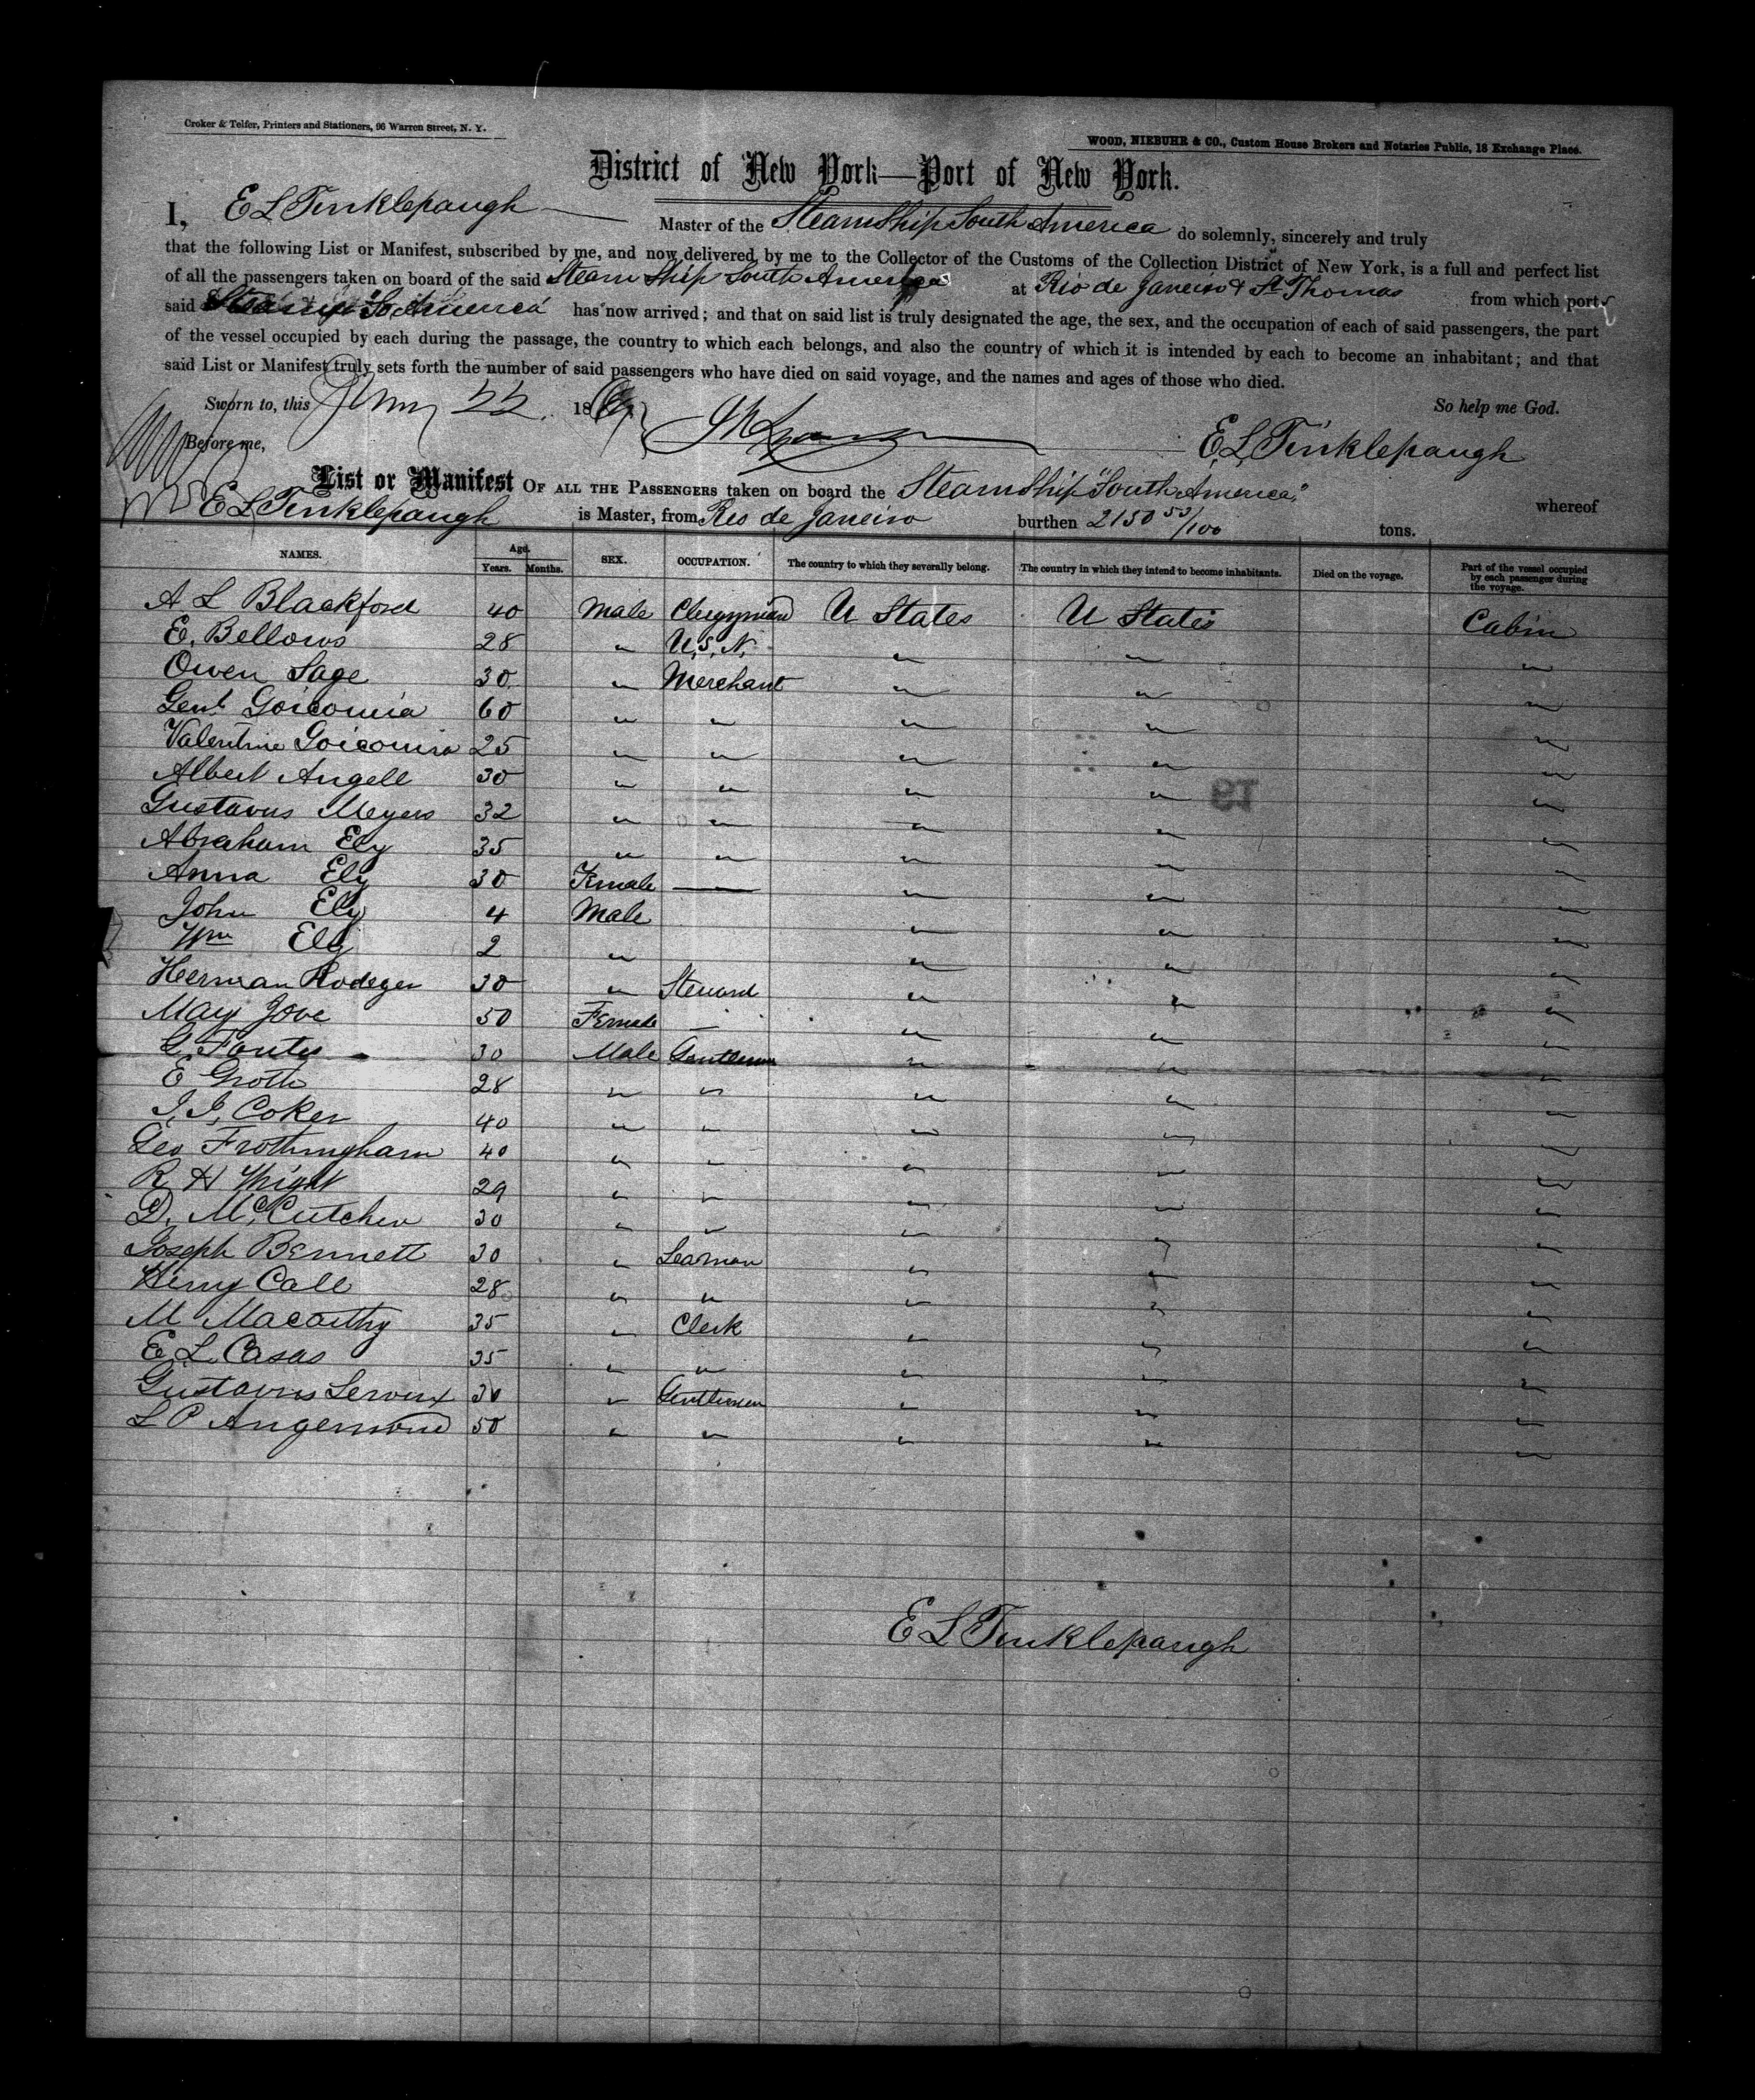 Croker & Telfer, Printers and Stationers, 96 Warren Street, N. Y.
WOOD, NIEBUHR & CO., Custom House Brokers and Notaries Public, 18 Exchange Place.
District of New York—Port of New York.
I, E L Tinklepaugh Master of the SteamShip South America do solemnly, sincerely and truly
that the following List or Manifest, subscribed by me, and now delivered by me to the Collector of the Customs of the Collection District of New York, is a full and perfect list
of all the passengers taken on board of the said Steam Ship South America at Rio de Janeiro & St Thomas from which port
said So America has now arrived; and that on said list is truly designated the age, the sex, and the occupation of each of said passengers, the part
of the vessel occupied by each during the passage, the country to which each belongs, and also the country of which it is intended by each to become an inhabitant; and that
said List or Manifest truly sets forth the number of said passengers who have died on said voyage, and the names and ages of those who died.
Sworn to, this 22 186 So help me God.
Before me, E. L. Tinklepaugh
List or Manifest OF ALL THE PASSENGERS taken on board the SteamShip "South America" whereof
E L Tinklepaugh is Master, from Rio de Janeiro burthen 2150 53/100 tons.
NAMES. Age. Years. Months. SEX. OCCUPATION. The country to which they severally belong. The country in which they intend to become inhabitants. Died on the voyage. Part of the vessel occupied by each passenger during the voyage.
A L Blackford 40 Male Clergyman U States U States Cabin
E. Bellows 28 " U.S.N. " " "
Owen Sage 30 " Merchant " " "
Genl Goicouria 60 " " " " "
Valentine Goicouria 25 " " " " "
Albert Angell 30 " " " " "
Gustavus Meyers 32 " " " " "
Abraham Ely 35 " " " " "
Anna Ely 30 Female — " " "
John Ely 4 Male " " "
Wm Ely 2 " " " "
Herman Rodeger 30 " Steward " " "
Mary Jove 50 Female — " " "
G. 30 Male Gentleman " " "
E Groth 28 " " " " "
Coker 40 " " " " "
Geo Frothingham 40 " " " " "
R H Wright 29 " " " " "
D. McCutchen 30 " " " " "
Joseph Bennett 30 " Seaman " " "
Henry Call 28 " " " " "
M Macarthy 35 " Clerk " " "
E. L. Casas 35 " " " " "
Gustavus 30 " Gentleman " " "
L P Angermond 50 " " " " "
E L Tinklepaugh